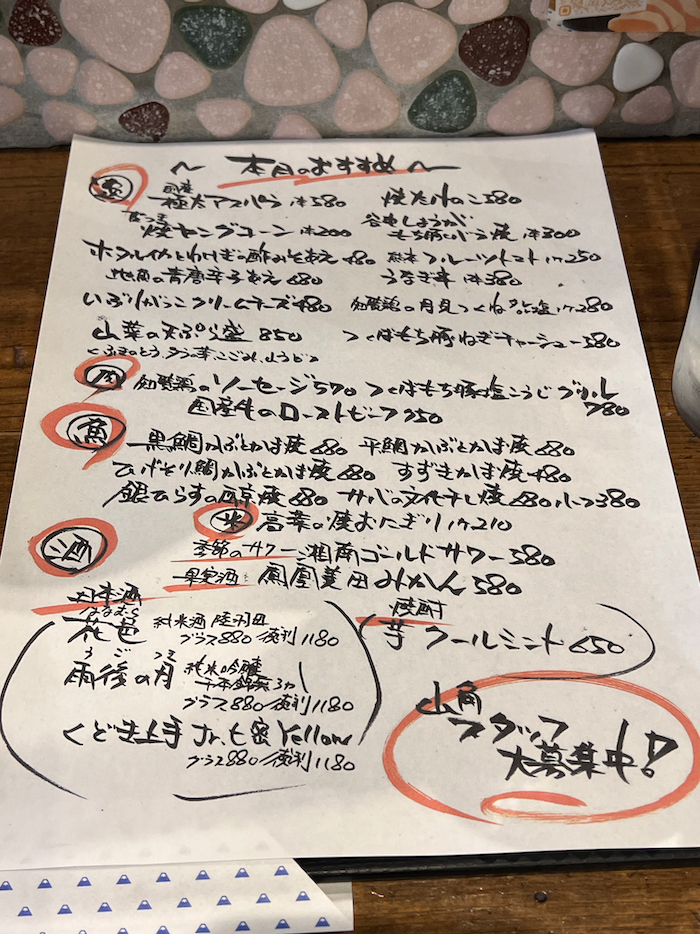 ～ 本日のおすすめ ～
国産
極太アスパラ 1本380 焼たけのこ580
焼ヤングコーン 1本200 谷中しょうが
もち豚バラ焼 1本300
ホタルイカとわけぎの酢みそあえ 480 熊本フルーツトマト 1ケ250
地魚の青唐辛子あえ 680 うなぎ串 1本380
いぶりがっこクリームチーズ480 知覧鶏の月見つくね 1ケ280
山菜の天ぷら盛 850 つくばもち豚ねぎチャーシュー580
くふきのとう、タラの芽、こごみ、山うど
肉 知覧鶏のソーセージ570 つくばもち豚塩こうじグリル
780
国産牛のローストビーフ 950
魚 黒鯛かぶとかま焼 680 平鯛かぶとかま焼 680
ひげそり鯛かぶとかま焼 680 すずきかま焼 480
銀ひらすの西京焼 680 サバの文化干し焼 680 ハーフ380
米 高菜の焼おにぎり 1ケ210
酒
季節のサワー 湘南ゴールドサワー 580
果実酒 鳳凰美田みかん 580
日本酒
ななむら
花邑 純米酒 陸羽田
グラス880/徳利1180
うごつき
雨後の月 純米吟醸
グラス880/徳利1180
くどき上手 Jr. Yellow
グラス880/徳利1180
焼酎
芋 クールミント 650
山角
スタッフ
大募集中!